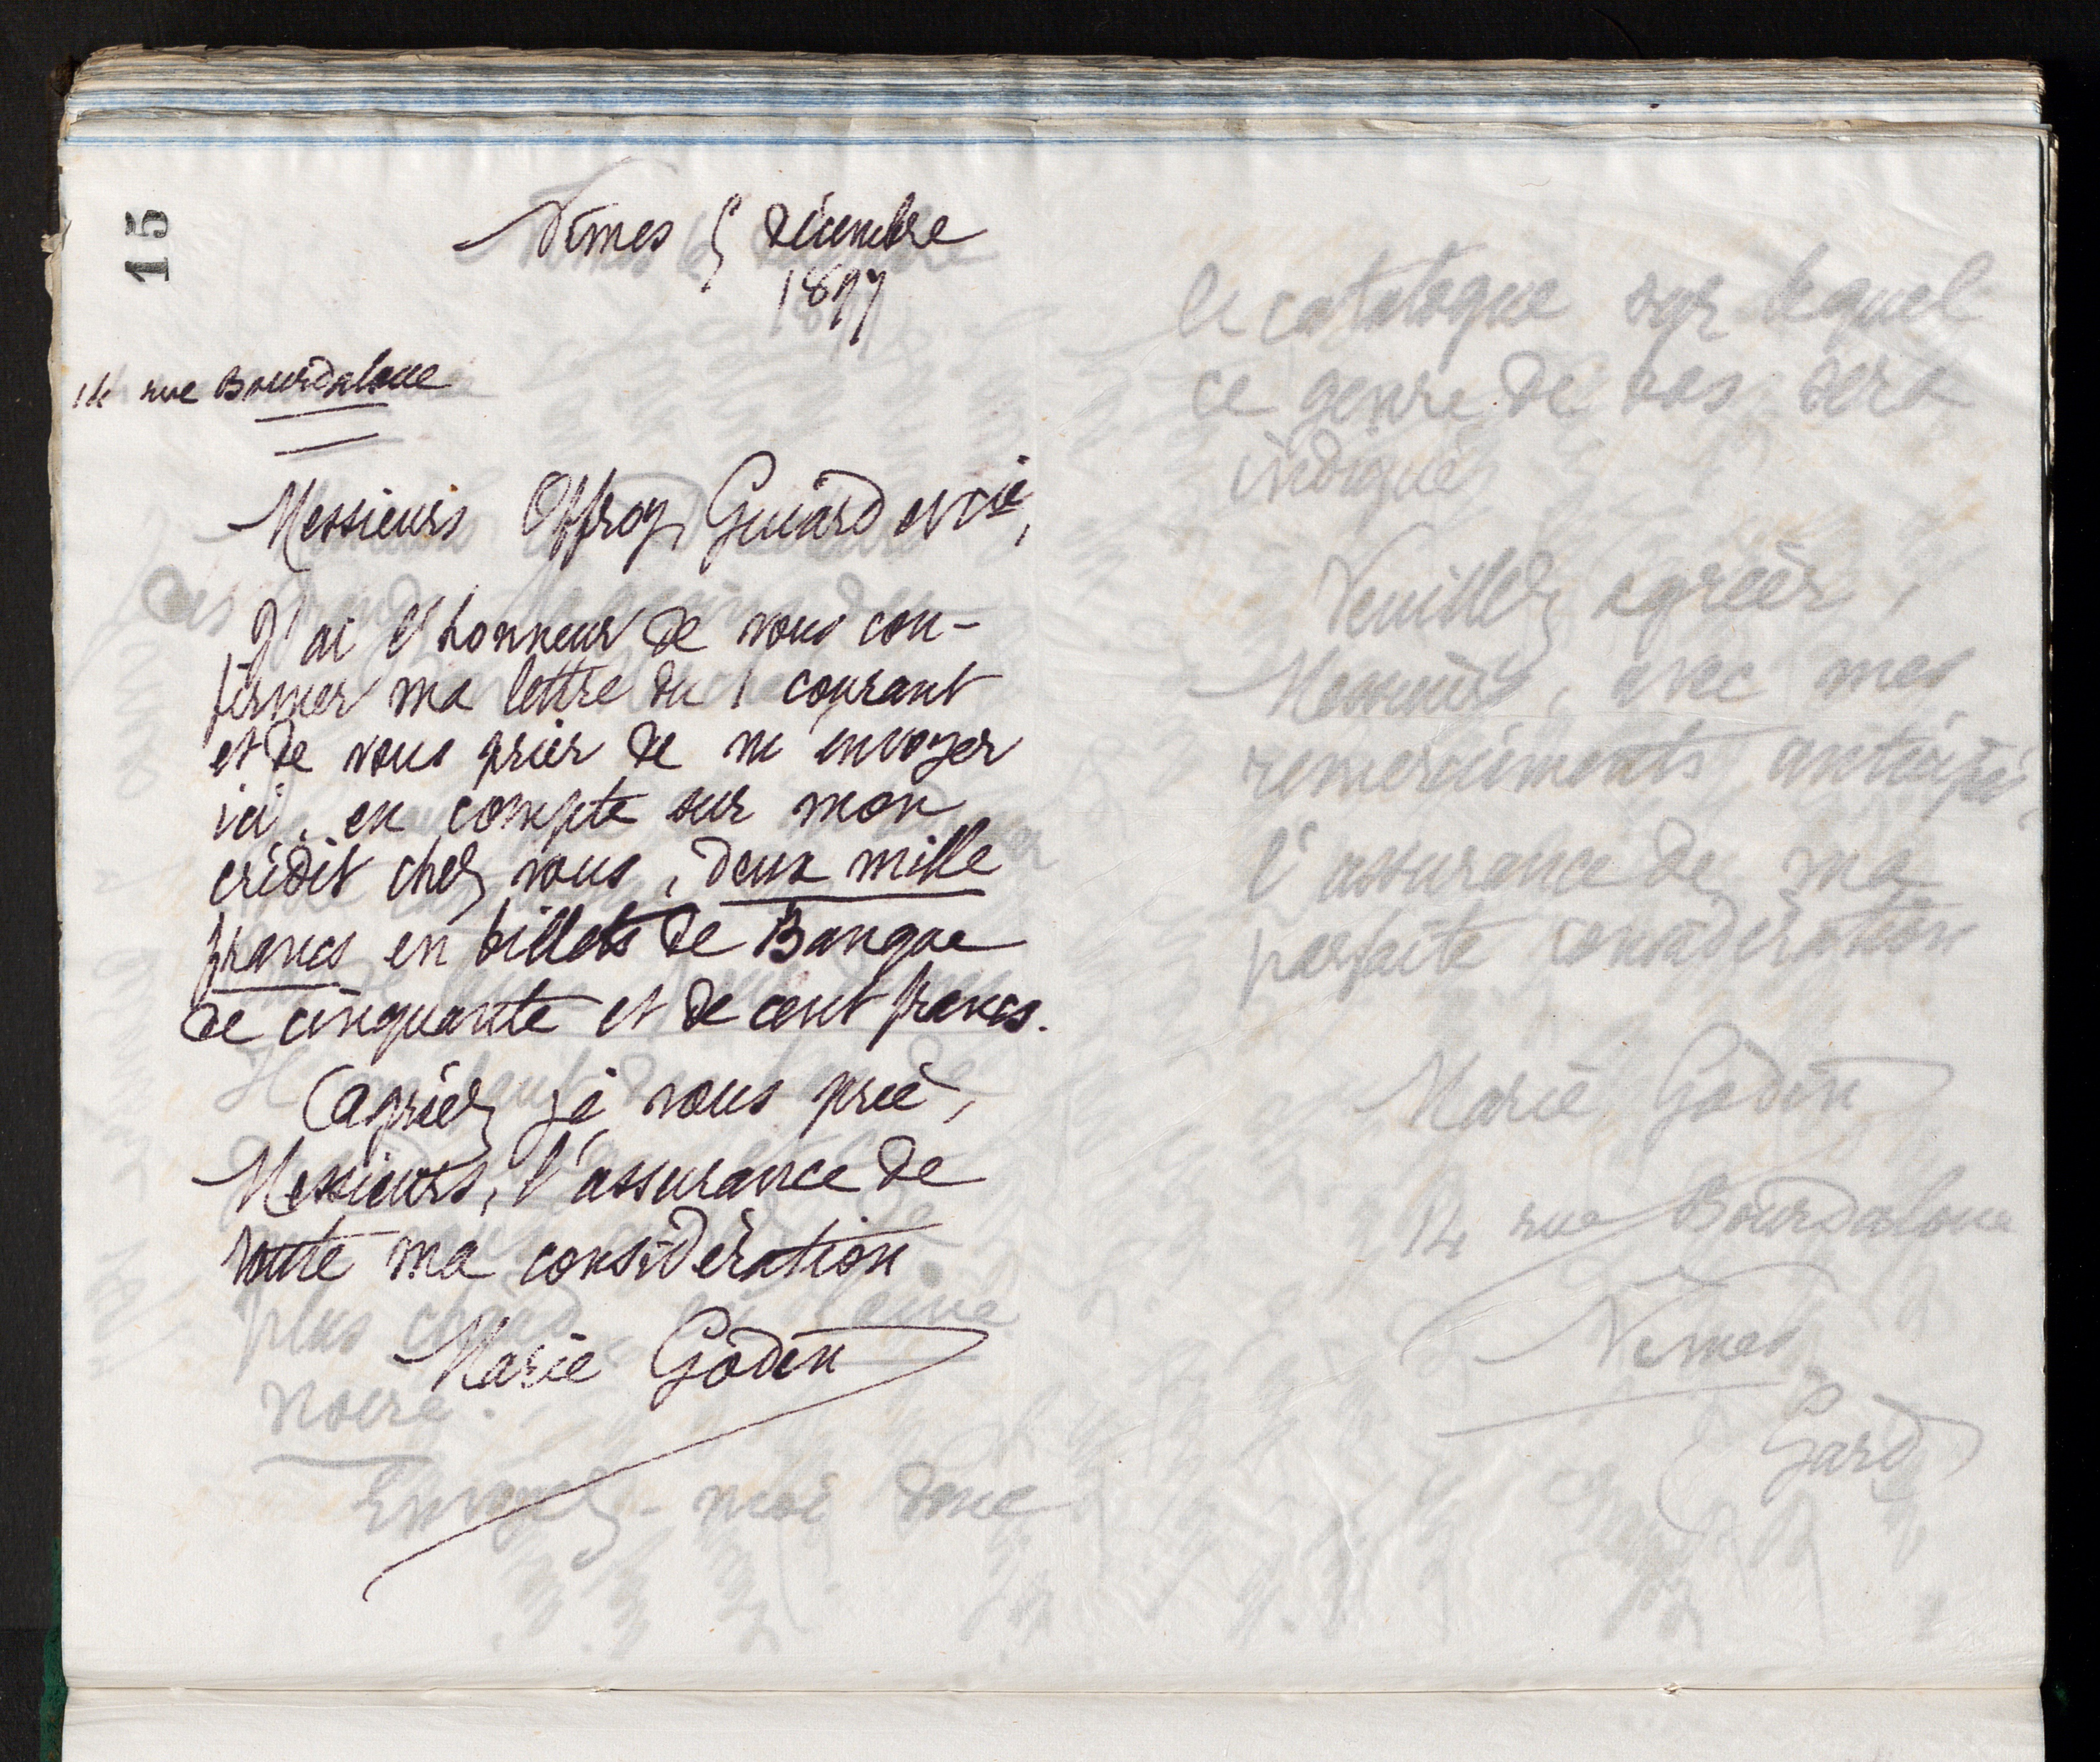 15
Nîmes 5 décembre
1897
14 rue Bourdaloue
Messieurs Offroy Guiard et Cie,
J'ai l'honneur de vous con-
firmer ma lettre du 1 courant
et de vous prier de m'envoyer
ici, en compte sur mon
crédit chez vous, deux mille
francs en billets de Banque
de cinquante et de cent francs.
Agréez je vous prie,
Messieurs, l'assurance de
toute ma considération
Marie Godin
plus chaud
noire.
Envoyez-moi donc
le catalogue sur lequel
ce genre de bas sera
indiqué
Veuillez agréer,
Messieurs, avec mes
remerciments anticipés
l'assurance de ma
parfaite considération
Marie Godin
14 rue Bourdaloue
Nîmes
Gard